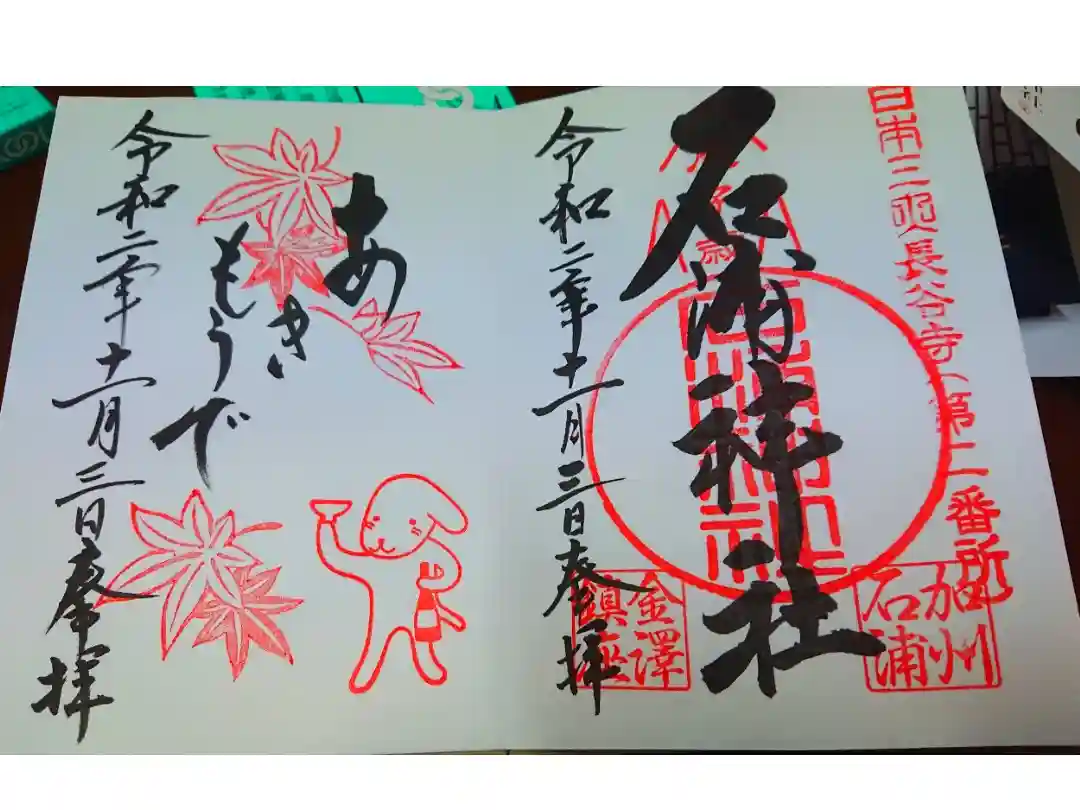 日本三所長谷寺第二番所
石浦神社
加州
石浦
金澤
鎮座
令和二年十一月三日奉拝
あき
もうで
令和二年十一月三日奉拝